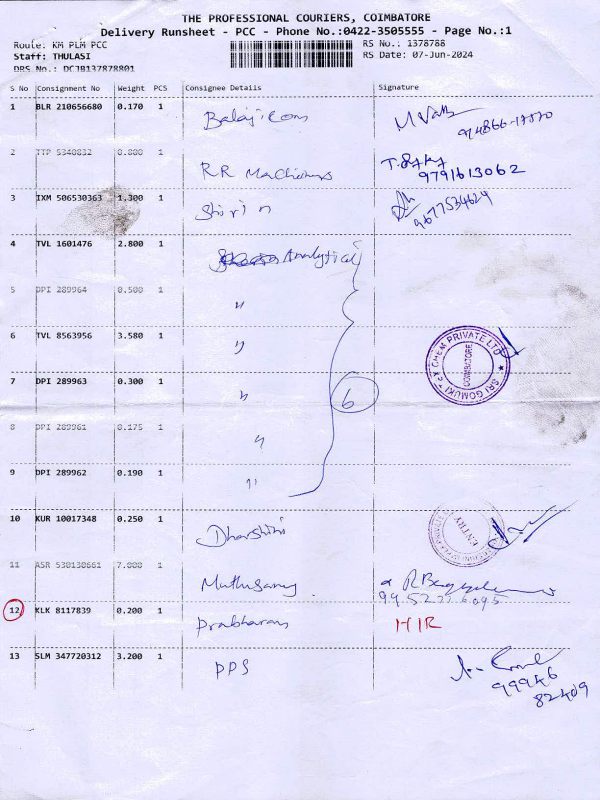 THE PROFESSIONAL COURIERS, COIMBATORE
Delivery Runsheet - PCC - Phone No.:0422-3505555 - Page No.:1
Route: KM PLM PCC RS No.: 1378788
Staff: THULASI RS Date: 07-Jun-2024
DRS No.: DCJB137878801
S No Consignment No Weight PCS Consignee Details Signature
1 BLR 210656680 0.170 1 Balaji
2 TTP 5340832 0.800 1 RR 9791613062
3 IXM 506530363 1.300 1 Shirin 9677534629
4 TVL 1601476 2.800 1 Analytical
5 DPI 289964 0.500 1 "
6 TVL 8563956 3.580 1 " CHEM PRIVATE LTD COIMBATORE
7 DPI 289963 0.300 1 " 6
8 DPI 289961 0.175 1 "
9 DPI 289962 0.190 1 "
10 KUR 10017348 0.250 1 Dharshini ENTRY
11 ASR 530130661 7.000 1 Muthusamy
12 KLK 8117839 0.200 1 Prabharan HIR
13 SLM 347720312 3.200 1 PPS 99946
82409